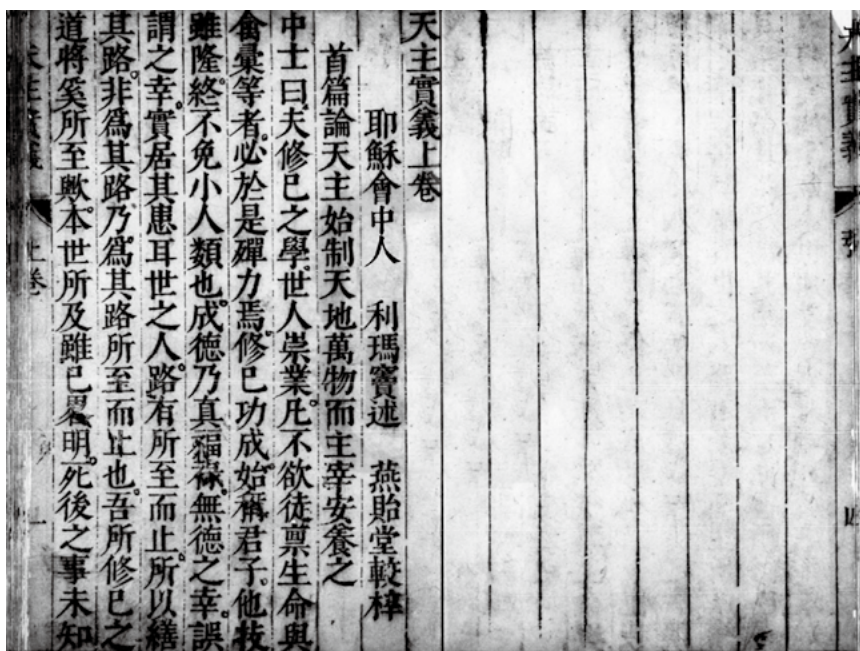 天主實義
天主實義上卷
耶穌會中人 利瑪竇述 燕貽堂較梓
首篇論天主始制天地萬物而主宰安養之
中士曰夫修己之學世人崇業凡不欲徒禀生命與
禽彙等者必於是殫力焉修己功成始稱君子他技
雖隆終不免小人類也成德乃真福祿無德之幸誤
謂之幸實居其患耳世之人路有所至而止所以繕
其路非為其路乃為其路所至而止也吾所修己之
道將奚所至歟本世所及雖已畧明死後之事未知
天主實義 上卷 一